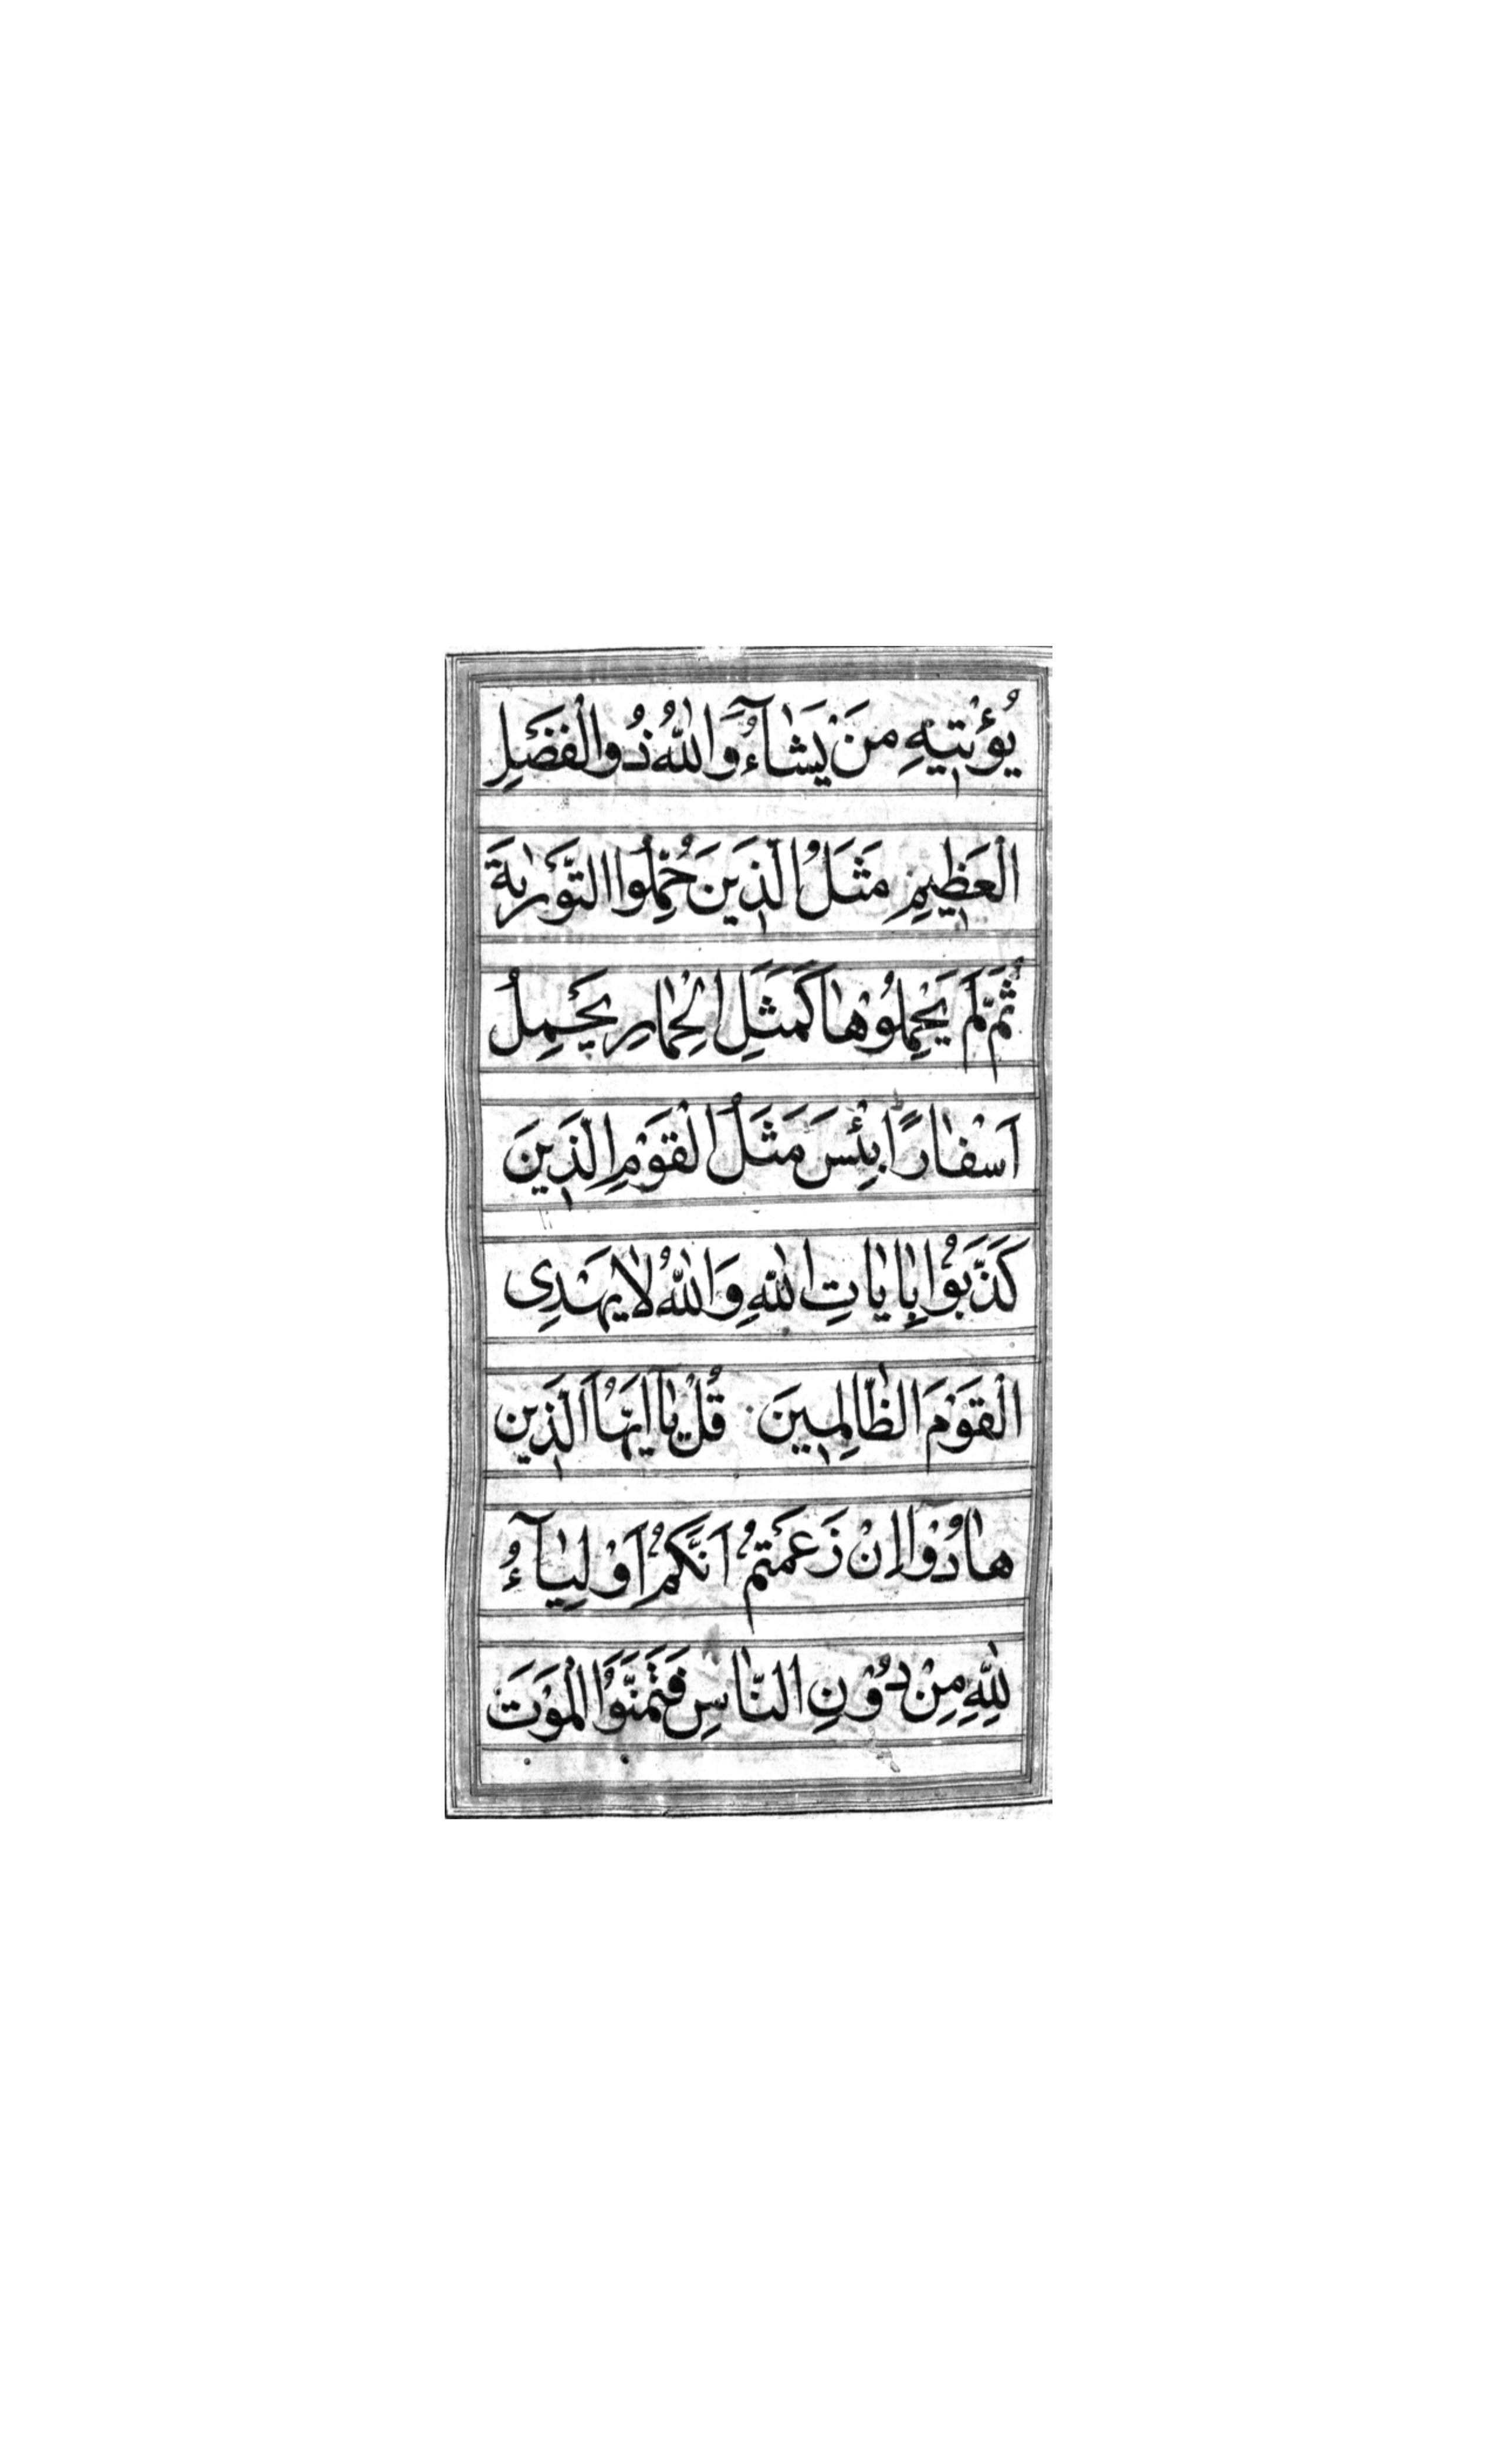 يُؤْتِيهِ مَنْ يَشَآءُ وَاللّٰهُ ذُوالْفَضْلِ
الْعَظِيمِ مَثَلُ الَّذِينَ حُمِّلُوا التَّوْرٰيةَ
ثُمَّ لَمْ يَحْمِلُوْهَا كَمَثَلِ الْحِمَارِ يَحْمِلُ
اَسْفَارًا بِئْسَ مَثَلُ الْقَوْمِ الَّذِينَ
كَذَّبُوْا بِاٰيَاتِ اللّٰهِ وَاللّٰهُ لَا يَهْدِى
الْقَوْمَ الظَّالِمِينَ قُلْ يَآاَيُّهَا الَّذِينَ
هَادُوْٓا اِنْ زَعَمْتُمْ اَنَّكُمْ اَوْلِيَآءُ
لِلّٰهِ مِنْ دُوْنِ النَّاسِ فَتَمَنَّوُا الْمَوْتَ